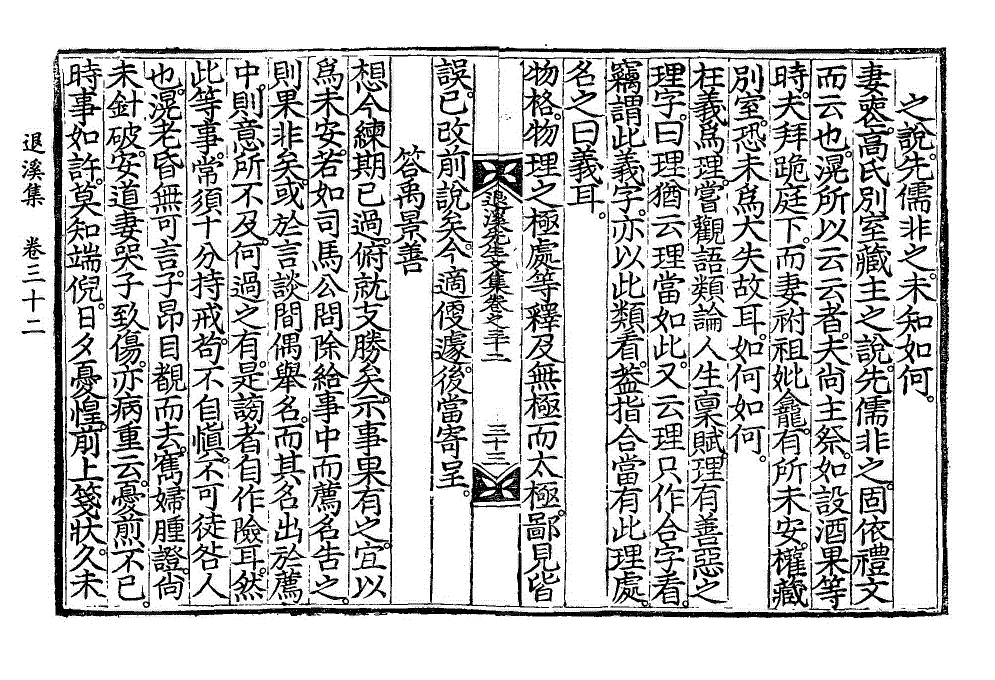 之說。先儒非之。未知如何。
妻喪。高氏別室藏主之說。先儒非之。固依禮文
而云也。滉所以云云者。夫尚主祭。如設酒果等
時。夫拜跪庭下。而妻祔祖妣龕。有所未安。權藏
別室。恐未爲大失故耳。如何如何。
枉義爲理。嘗觀語類論人生稟賦。理有善惡之
理字曰。理猶云理當如此。又云理只作合字看。
竊謂此義字。亦以此類看。蓋指合當有此理處。
名之曰義耳。
物格。物理之極處等釋及無極而太極。鄙見皆
退溪先生文集卷之三十二
三十三
誤。已改前說矣。今適傻遽。後當寄呈。
答禹景善
想今練期已過。俯就支勝矣。示事果有之。宜以
爲未安。若如司馬公問除給事中而薦名告之。
則果非矣。或於言談間偶舉名。而其名出於薦
中。則意所不及。何過之有。是謗者自作險耳。然
此等事。常須十分持戒。苟不自愼。不可徒咎人
也。滉老昏無可言。子昂目覩而去。寯婦腫證。尙
未針破。安道妻哭子致傷。亦病重云。憂煎不已。
時事如許。莫知端倪。日夕憂惶。前上箋狀。久未
退溪集　卷三十二